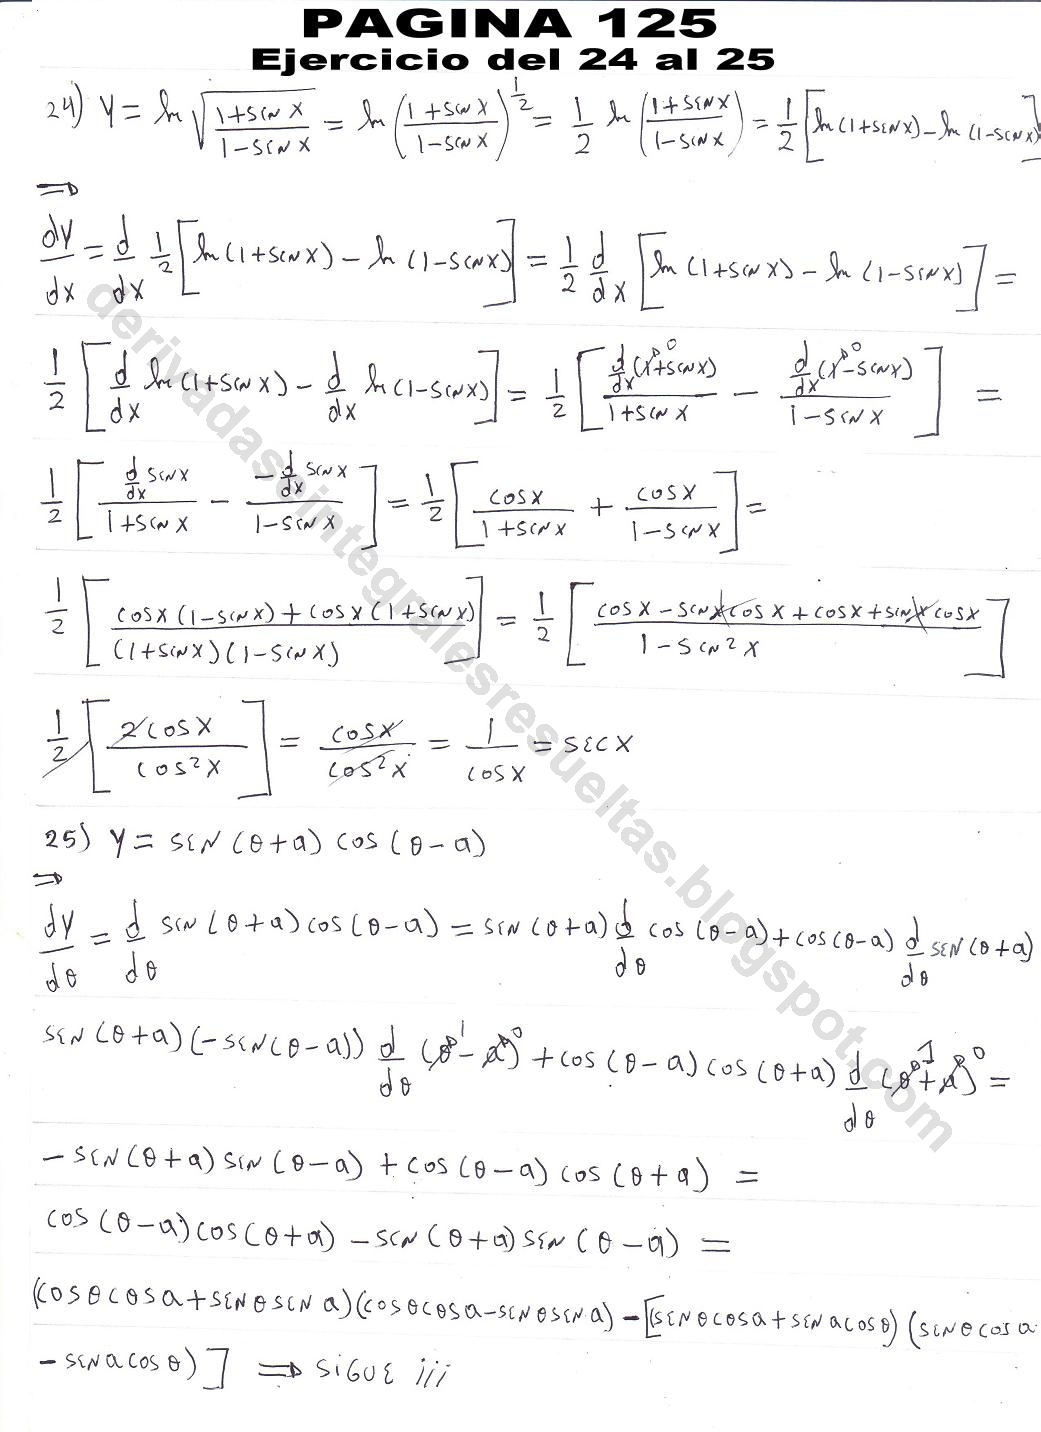 PAGINA 125
Ejercicio del 24 al 25
24) Y = ln √((1+sen x)/(1-sen x)) = ln ((1+sen x)/(1-sen x))^(1/2) = 1/2 ln ((1+sen x)/(1-sen x)) = 1/2 [ln (1+sen x) - ln (1-sen x)]
⇒
dy/dx = d/dx 1/2 [ln (1+sen x) - ln (1-sen x)] = 1/2 d/dx [ln (1+sen x) - ln (1-sen x)] =
1/2 [d/dx ln (1+sen x) - d/dx ln (1-sen x)] = 1/2 [(d/dx (1→0 + sen x))/(1+sen x) - (d/dx (1→0 - sen x))/(1-sen x)] =
1/2 [(d/dx sen x)/(1+sen x) - (-d/dx sen x)/(1-sen x)] = 1/2 [cos x/(1+sen x) + cos x/(1-sen x)] =
1/2 [(cos x (1-sen x) + cos x (1+sen x))/((1+sen x)(1-sen x))] = 1/2 [(cos x - sen x cos x + cos x + sen x cos x)/(1-sen² x)]
1/2 [2 cos x/cos² x] = cos x/cos² x = 1/cos x = sec x
25) Y = sen (θ+a) cos (θ-a)
⇒
dy/dθ = d/dθ sen (θ+a) cos (θ-a) = sen (θ+a) d/dθ cos (θ-a) + cos (θ-a) d/dθ sen (θ+a)
sen (θ+a) (-sen (θ-a)) d/dθ (θ→1 - a→0) + cos (θ-a) cos (θ+a) d/dθ (θ→1 + a→0) =
- sen (θ+a) sen (θ-a) + cos (θ-a) cos (θ+a) =
cos (θ-a) cos (θ+a) - sen (θ+a) sen (θ-a) =
(cos θ cos a + sen θ sen a) (cos θ cos a - sen θ sen a) - [(sen θ cos a + sen a cos θ) (sen θ cos a
- sen a cos θ)] ⇒ SIGUE ¡¡¡
derivadaseintegralesresueltas.blogspot.com